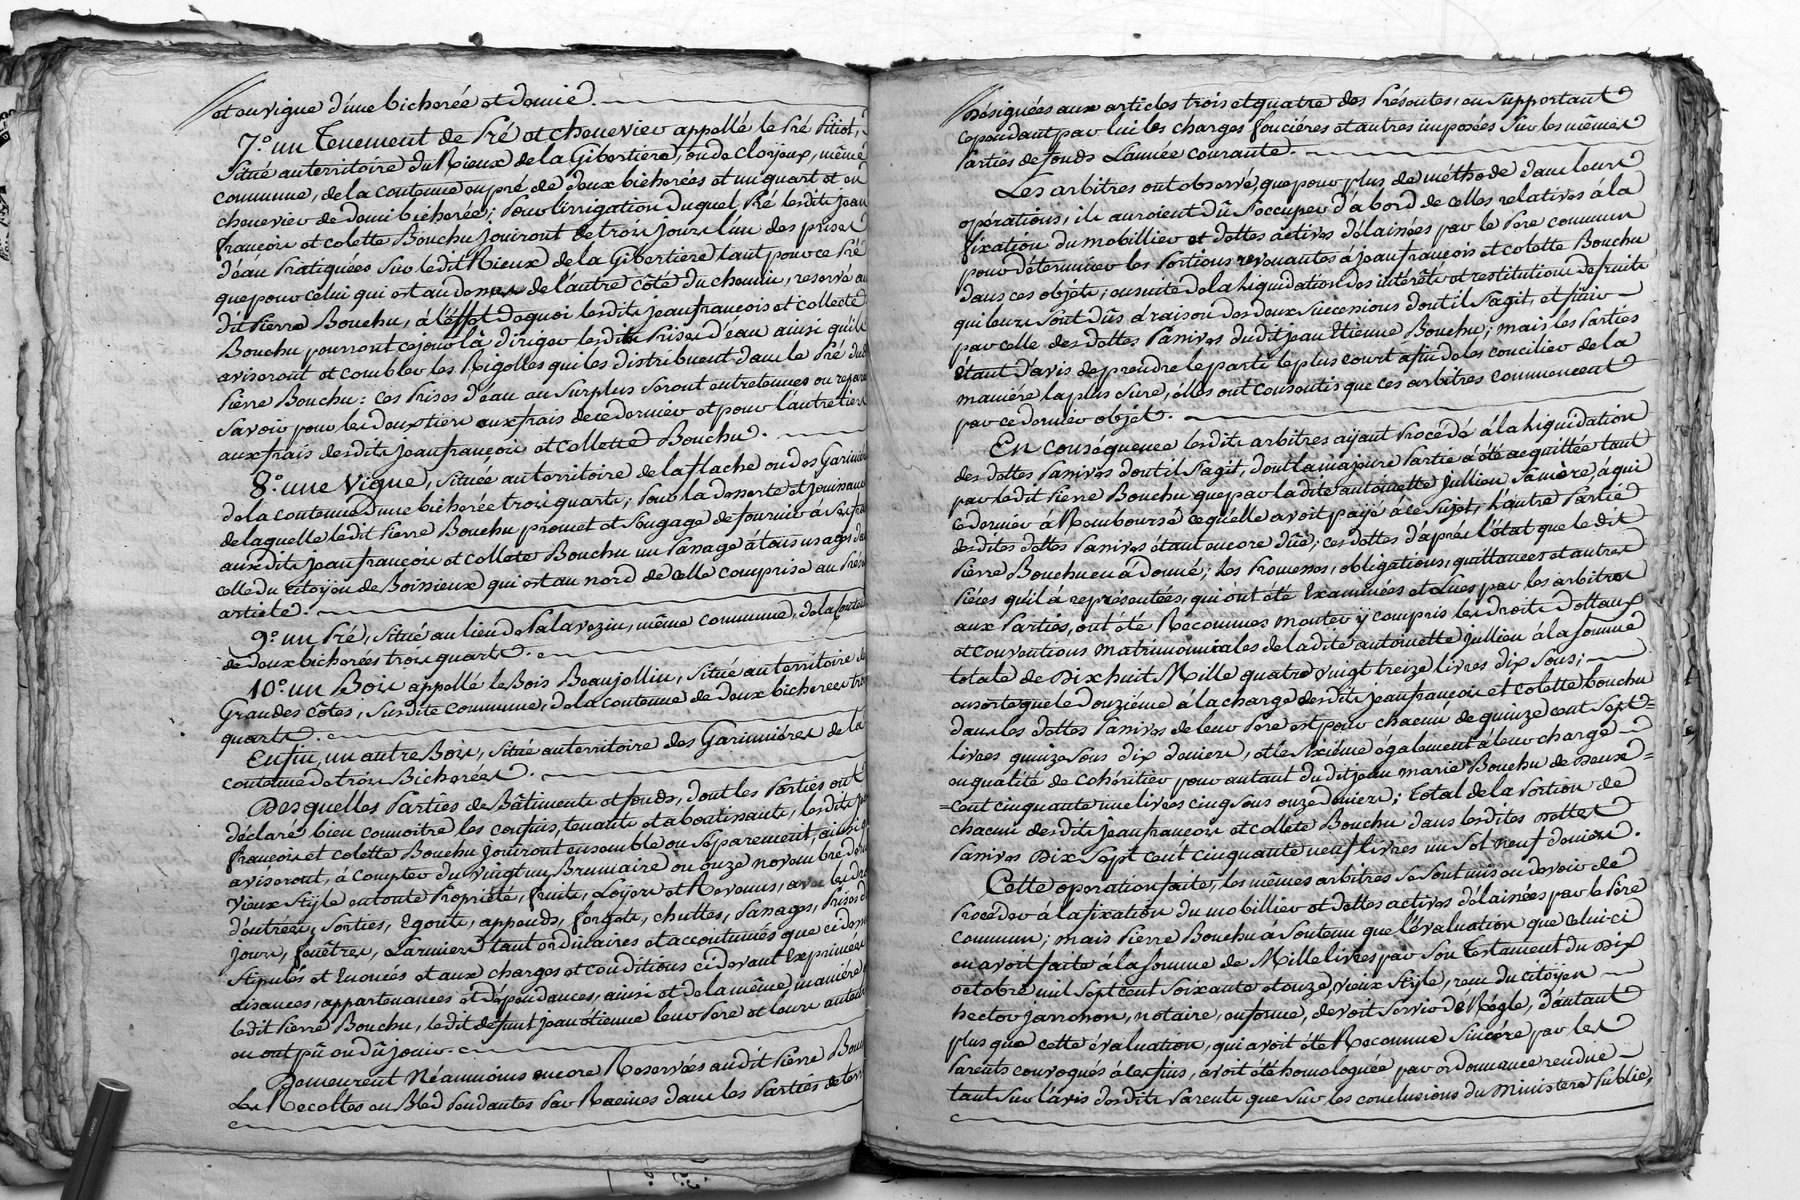 et en vigne d'une bicherée et demie.
7.° un Tenement de Pré et chenevier appellé le Pré Pitiot,
Situé au territoire du Rieux de la Gibertiere, ou de cloijeux, même
commune, de la contenue en pré de deux bicherées et un quart et en
chenevier de demi bicherée; Pour l'irrigation duquel Pré lesdits jean
françois et colette Bouchu jouiront de trois jours l'un des prises
d'éau Pratiquées Sur ledit Rieux de la Gibertiere tant pour ce Pré
que pour celui qui est au dessus de l'autre côté du chemin, reservé au
dit Pierre Bouchu, à l'éffet de quoi lesdits jean françois et collecte
Bouchu pourront ce jour là diriger lesdites Prises d'eau ainsi qu'ils
aviseront et combler les Rigolles qui les distribuent dans le Pré dud
Pierre Bouchu: ces Prises d'éau au Surplus Seront entretenues ou reparé
Savoir pour les deux tiers aux frais de ce dernier et pour l'autre tiers
aux frais desdits jean françois et collette Bouchu.
8.° une Vigne, Située au territoire de la flache ou des Garinie
de la contenue d'une bicherée trois quarts, Pour la desserte et jouissance
de laquelle ledit Pierre Bouchu promet et S'engage de fournir à Ses frais
auxdits jean françois et collete Bouchu un Passage à tous usages dans
celle du Citoÿen de Boissieux qui est au nord de celle comprise au Prése
article.
9.° un Pré, Situé au lieu de Palavezin, même commune, de la contenue
de deux bicherées trois quarts.
10.° un Bois appellé le Bois Beaujollin, Situé au territoire des
Grandes côtes, Susdite commune, de la contenue de deux bicherées trois
quarts.
Enfin, un autre Bois, Situé au territoire des Garinniéres de la
contenue de trois Bicherées.
Desquelles Parties de Bâtiments et fonds, dont les Parties ont
déclaré bien connoitre les confins, tenants et aboutissants, lesdits je
françois et colette Bouchu jouiront ensemble ou Séparement, ainsi q
aviseront, à compter du vingt un Brumaire ou onze novembre der
Vieux Style en toute Propriété, fruits, Loÿers et Revenus, avec les dro
d'entrées, Sorties, Egouts, appends, forgets, chuttes, Passages, Prises d
jours, fenêtres, Larmiers tant ordinaires et accoutumés que ci dessu
Stipulés et Enoncés et aux charges et conditions ci devant Exprimées
aisances, appartenances et dépendances, ainsi et de la même maniére q
ledit Pierre Bouchu, ledit défunt jean étienne leur Pere et leurs auteurs
en ont pû ou dû jouir.
Demeurent Néanmoins encore Reservées audit Pierre Bouc
Les Recoltes en Bled Pendantes Par Racines dans les Parties de terr
désignées aux articles trois et quatre des Présentes, en Supportant
cependant par lui les charges fonciéres et autres imposées Sur les mêmes
Parties de fonds L'année courante.
Les arbitres ont observé, que pour plus de méthode dans leurs
operations, ils auroient dû S'occuper d'abord de celles relatives à la
fixation du mobillier et dettes actives délaissées par le Pere commun
pour déterminer les Portions revenantes à jean françois et colette Bouchu
dans ces objets; ensuite de la Liquidation des intérêts et restitutions de fruits
qui leurs Sont dûs à raison des deux Successions dont il S'agit, et finir
par celle des dettes Passives dudit jean Etienne Bouchu; mais les Parties
étant d'avis de prendre le parti le plus court afin de les concilier de la
maniére la plus Sure, élles ont consentis que ces arbitres commencent
par ce dernier objét.
En conséquence lesdits arbitres aÿant Procédé à la Liquidation
des dettes Passives dont il S'agit, dont la majeure Partie a été acquittée tant
par ledit Pierre Bouchu que par ladite antoinette Jullien Sa mère, à qui
ce dernier à Remboursé ce qu'élle avoit payé à ce Sujet, L'autre Partie
desdites dettes Passives étant encore dûe; ces dettes d'après l'état que ledit
Pierre Bouchu en à donné; Les Promesses, obligations, quittances et autres
Piéces qu'il à représentées, qui ont été Examinées et Lues par les arbitres
aux Parties, ont été Reconnues monter ÿ compris les droits dottaux
et conventions matrimonniales de ladite antoinette jullien à la Somme
totale de Dix huit Mille quatre vingt treize livres dix Sous;
en sorte que le douziéme à la charge desdits jean françois et colette bouchu
dans les dettes Passives de leur Pere est pour chacun de quinze cent Sept=
livres quinze Sous dix deniers, et le Sixiéme également à leur charge
en qualité de cohéritier pour autant dudit jean marie Bouchu de Deux=
=cent cinquante une livres cinq Sous onze deniers; total de la Portion de
chacun desdits jean françois et collete Bouchu dans lesdites dettes
Passives Dix Sept cent cinquante neuf livres un Sol neuf deniers.
Cette operation faite, les mêmes arbitres Se Sont mis en devoir de
Procéder à la fixation du mobillier et dettes actives délaissées par le Pere
commun; mais Pierre Bouchu a Soutenu que l'évaluation que celui-ci
en avoit faite à la Somme de Mille livres par Son Testament du Dix
octobre mil Sept cent Soixante et onze, vieux Style, reçu du citoÿen
hector jannonon, notaire, en forme, devoit Servir de Régle, d'autant
plus que cette évaluation, qui avoit été Reconnue Sincére par les
Parents convoqués à les fins, avoit été homologuée par ordonnance rendue
tant Sur l'avis desdits Parents que Sur les conclusions du Ministere Public,